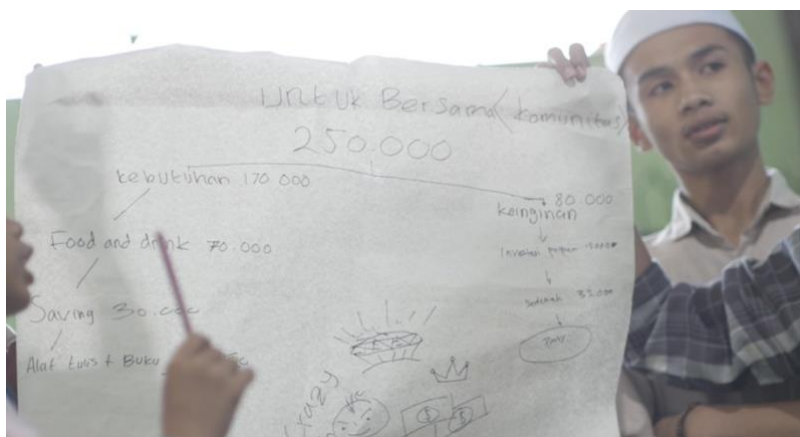 Untuk Bersama (Komunitas)
250.000
kebutuhan 170 000
80 000
keinginan
Food and drink 70.000
Saving 30.000
sedekah
Alat tulis + Buku
Crazy
$ $